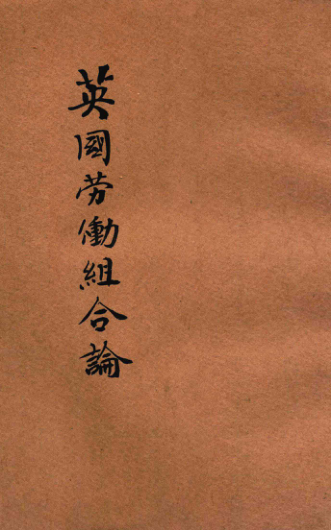 英國労働組合論